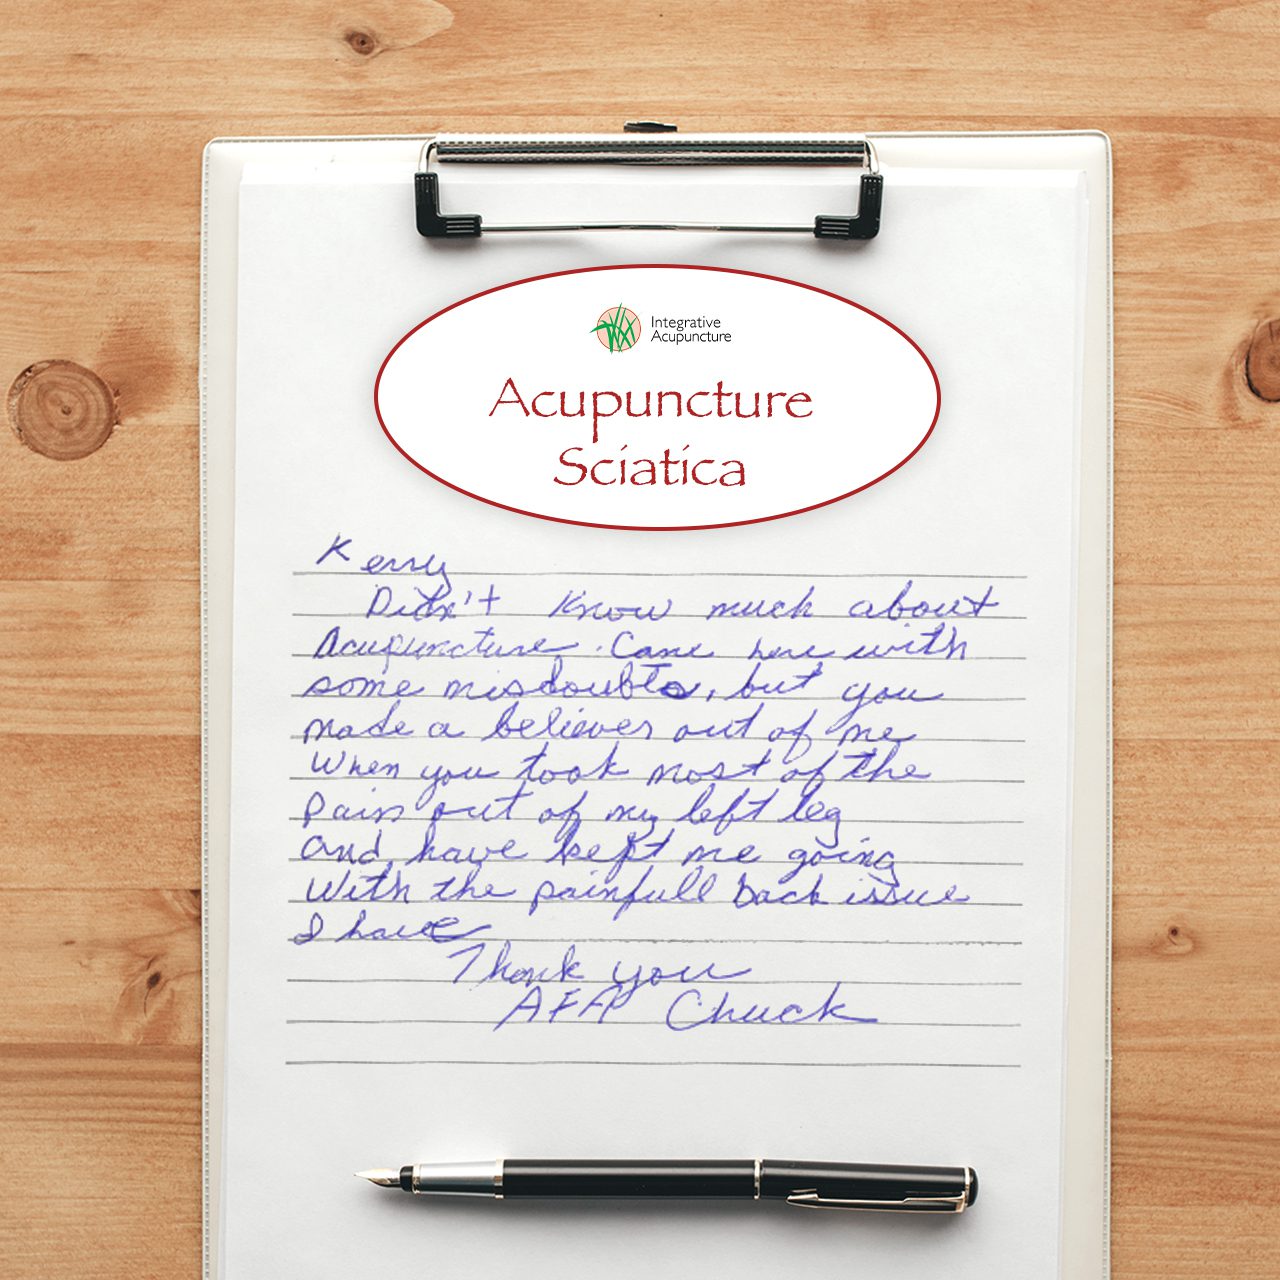 Integrative
Acupuncture
Acupuncture
Sciatica
Kerry
Didn't know much about
Acupuncture. Came here with
some misdoubts, but you
made a believer out of me
When you took most of the
pain out of my left leg
and have kept me going
With the painfull back issue
I have
Thank you
AFA Chuck